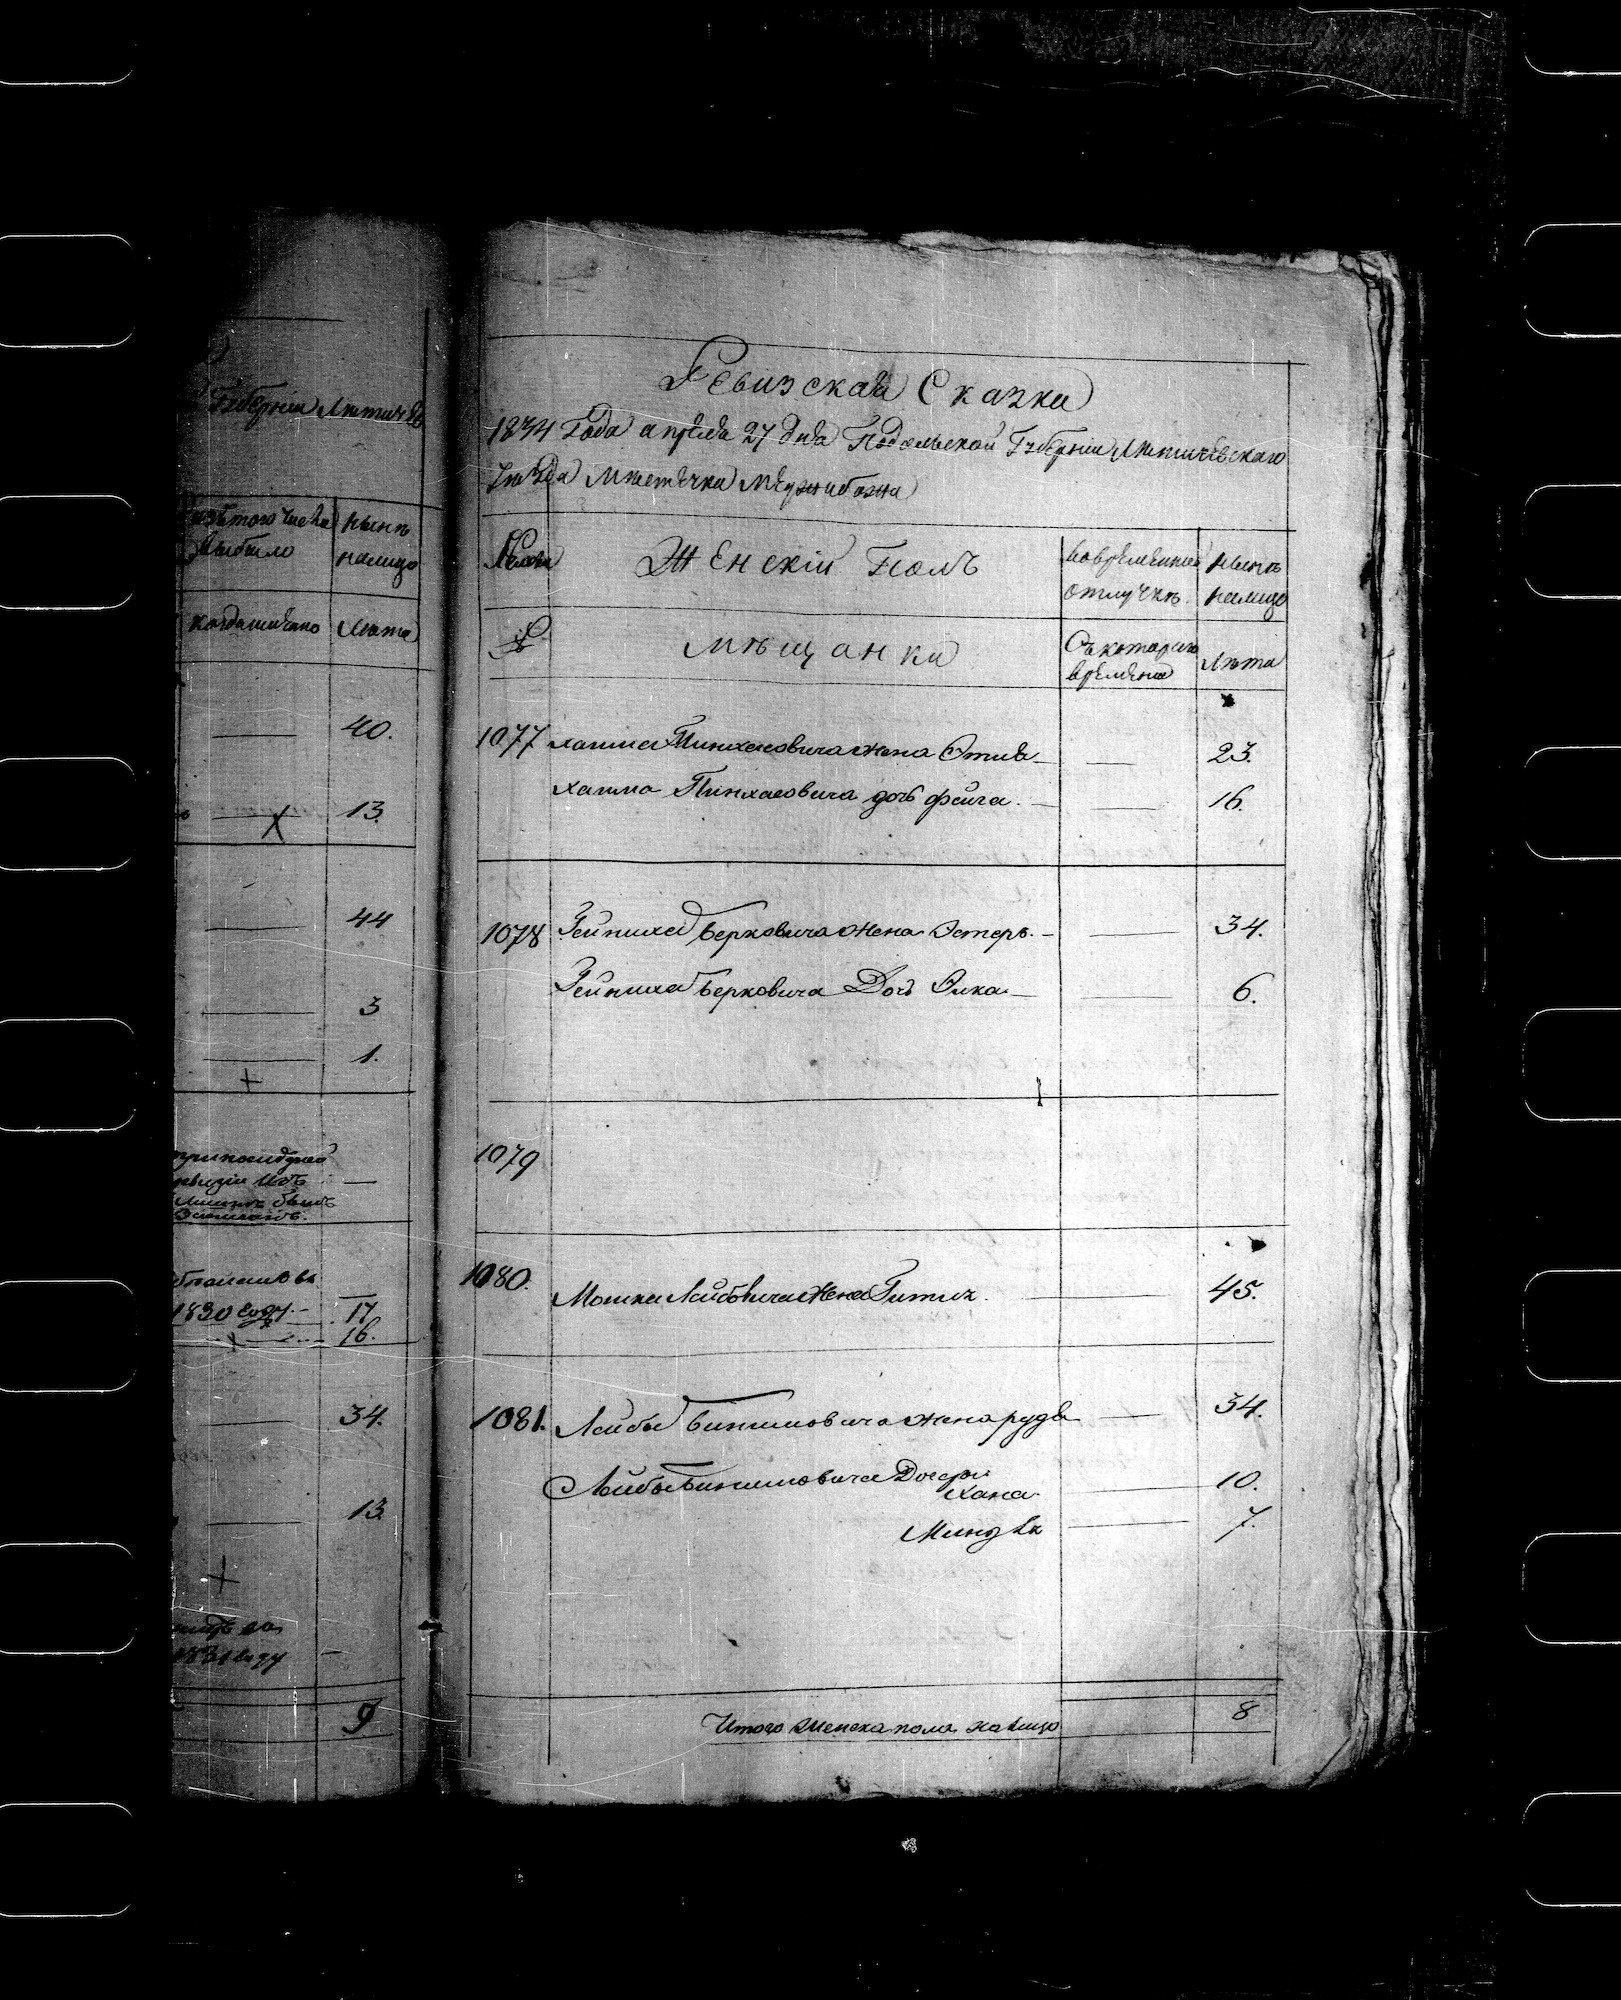 Губерніи Летичев
изътого числа
выбыло
нынѣ
налицо
когда именно
Лѣта
40.
13.
44
3
1.
1830 году
17
16.
34.
13
1831 году
9
Ревизская Сказка
1834 Года апреля 27 дня Подольской Губерніи Летичевскаго
уѣзда мѣстечка Межибожа
Семьи
Женскій Полъ
Вовременной
отлучке
нынѣ
налицо
№
мѣщанки
Съкотораго
времени
Лѣта
1077 хаима Пинхасовича жена Этля 23.
хаима Пинхасовича дочь фейга 16.
1078 Зейниха Берковича жена Эстеръ 34.
Зейниха Берковича Дочь Элка 6.
1079
1080. Мошка Лейбовича жена Гитля 45.
1081. Лейбы жена рудя 34.
Лейбы Дочери
Хана 10.
Миндля 7.
Итого женска пола налицо 8